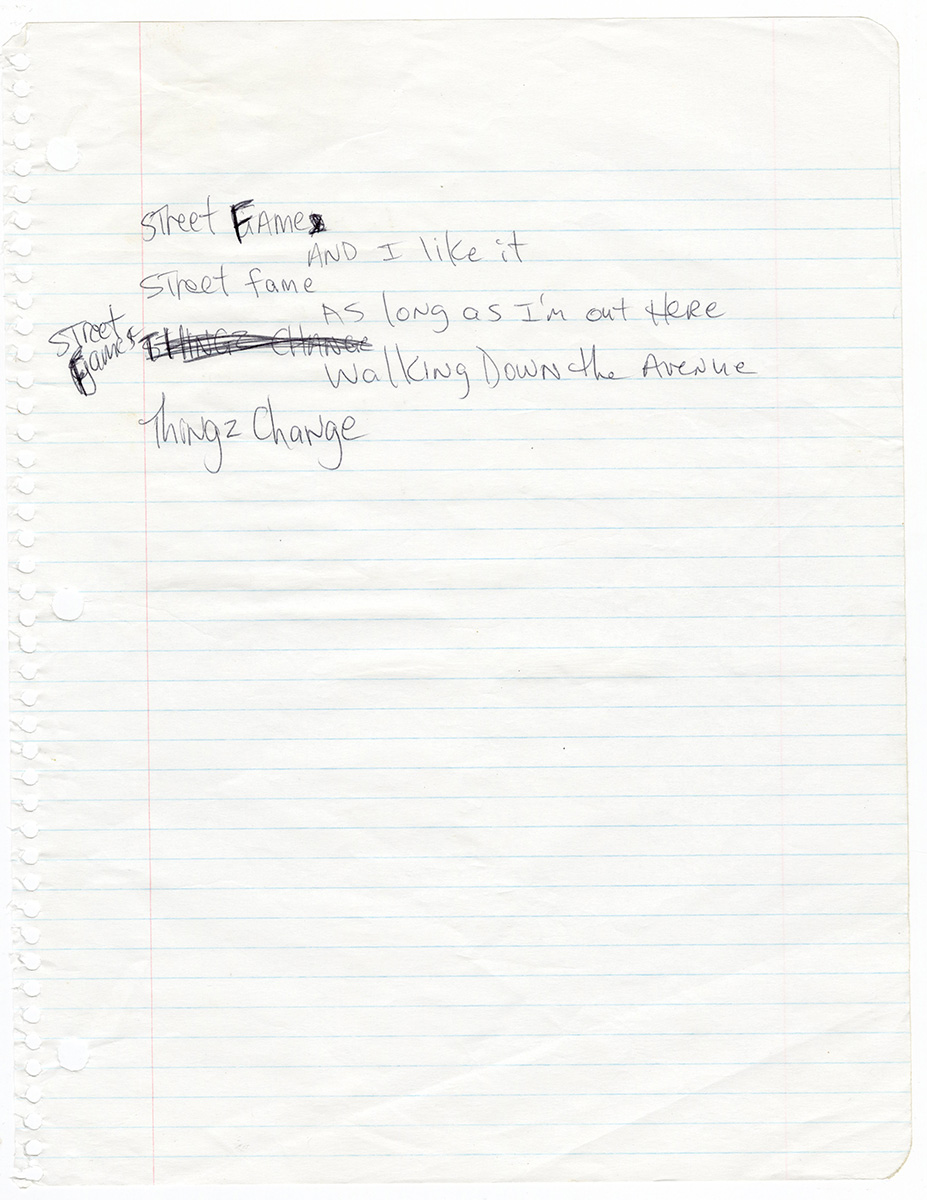 Street FAME
AND I like it
Street fame
AS long as I'm out HERE
Street
Fames
THINGZ CHANGE
Walking Down the Avenue
Thingz Change